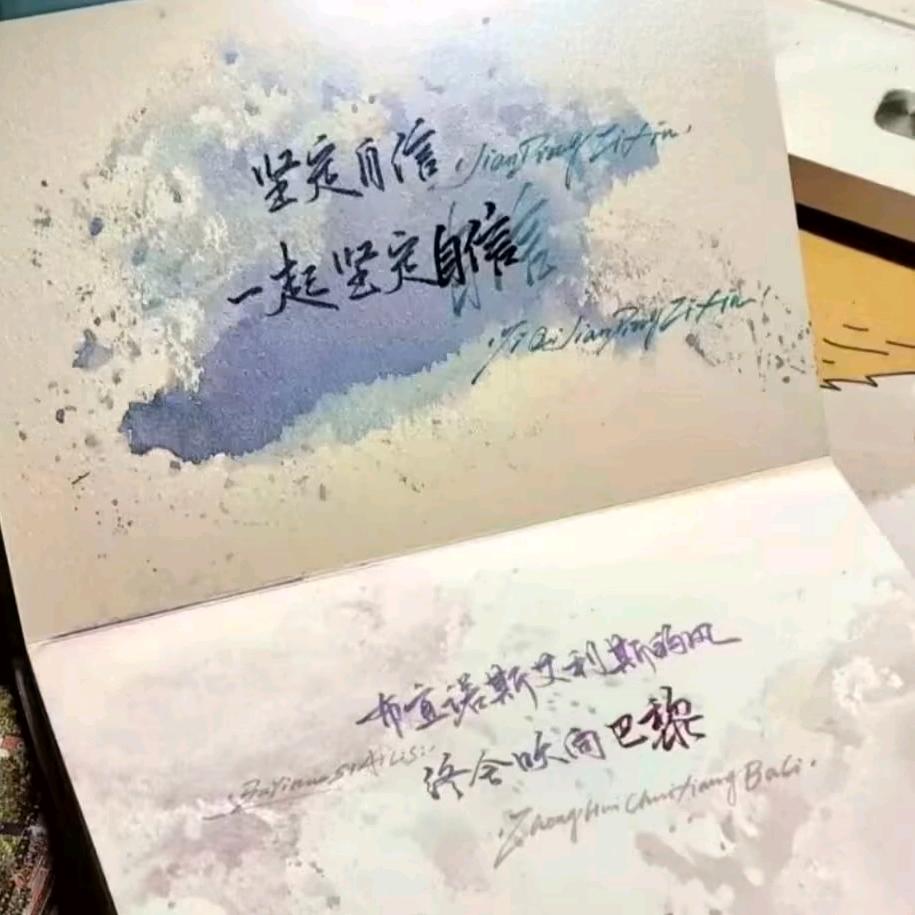 坚定自信 JianDingZiXin
一起坚定自信
YiQiJianDingZiXin
布宜诺斯艾利斯的风
终会吹向巴黎
ZhongHuiChuiXiangBaLi.